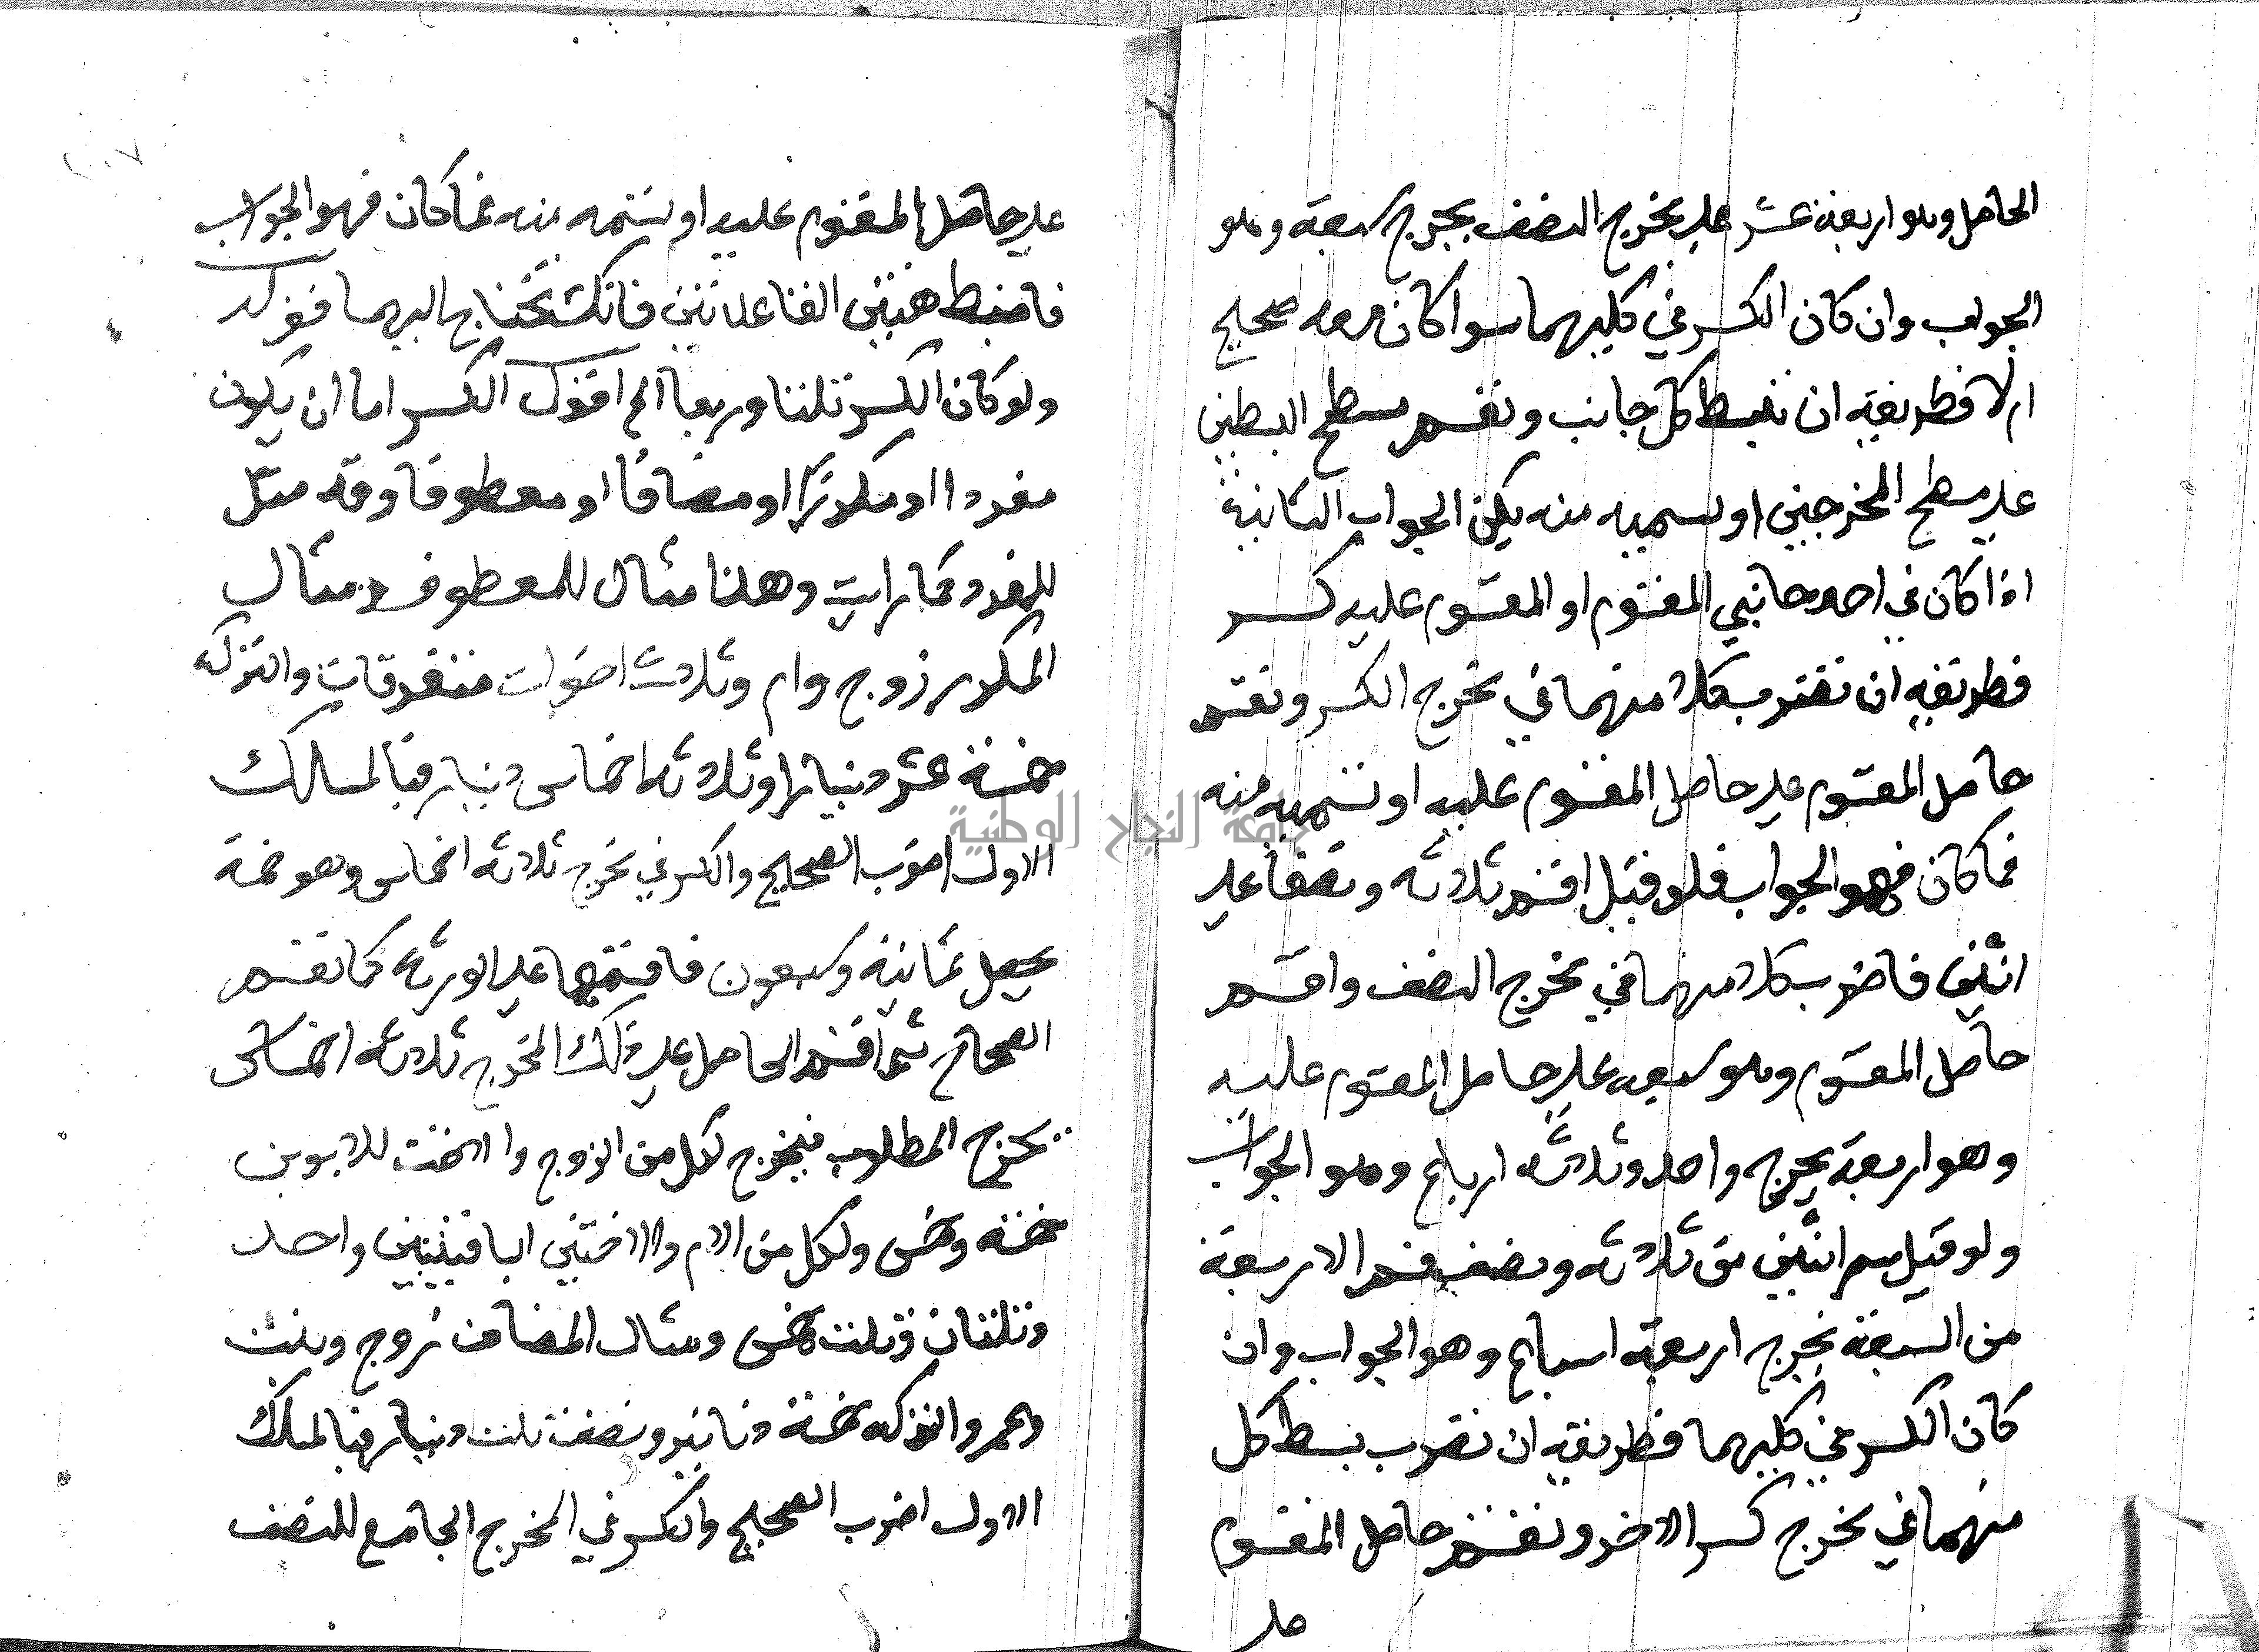 الحاصل وهو اربعة عشر على مخرج النصف يخرج سبعة وهو
الجواب وان كان الكسر في كليهما سوا كان معه صحيح
ام لا فطريقه ان تبسط كل جانب وتقسم مسطح البسطين
على مسطح المخرجين او تسميه منه يكن الجواب الثانية
اذا كان في احد جانبي المقسوم او المقسوم عليه كسر
فطريقه ان تضرب كلا منهما في مخرج الكسر وتقسم
حاصل المقسوم على حاصل المقسوم عليه او تسميه منه
فما كان فهو الجواب فلو قيل اقسم ثلاثة ونصفا على
اثنين فاضرب كلا منهما في مخرج النصف واقسم
حاصل المقسوم وهو سبعه على حاصل المقسوم عليه
وهو اربعة يخرج واحد وثلاثة ارباع وهو الجواب
ولو قيل سم اثنين من ثلاثه ونصف فسم الاربعة
من السبعة يخرج اربعة اسباع وهو الجواب وان
كان الكسر في كليهما فطريقه ان تضرب بسط كل
منهما في مخرج كسر الاخر وتقسم حاصل المقسوم
على حاصل المقسوم عليه او تسمه منه فما كان فهو الجواب
فاضبط هتين القاعدتين فانك تحتاج اليهما قوله
ولو كان الكسر ثلثا وربعا الخ اقول الكسر اما ان يكون
مفردا او مكررا او مضافا او معطوفا وقد مثل
للمفرد كما رايت وهذا مثال للمعطوف ومثال
المكرر زوج وام وثلاث اخوات متفرقات والتركه
خمسة عشر دينارا وثلاثه اخماس دينار فبالمسلك
الاول اضرب الصحيح والكسر في مخرج ثلاثه اخماس وهو خمسة
يحصل ثمانية وسبعون فاقسمها على الورثه كما تقسم
الصحاح ثم اقسم الحاصل على ذلك المخرج ثلاثه اخماس
يخرج المطلوب فيخرج لكل من الزوج والاخت للابوين
خمسه وخمس ولكل من الام والاختين الباقيتين واحد
وثلثان وثلث خمس ومثال المضاف زوج وبنت
وعم والتركه خمسة دنانير ونصف ثلث دينار فبالمسلك
الاول اضرب الصحيح والكسر في المخرج الجامع للنصف
جامعة النجاح الوطنية